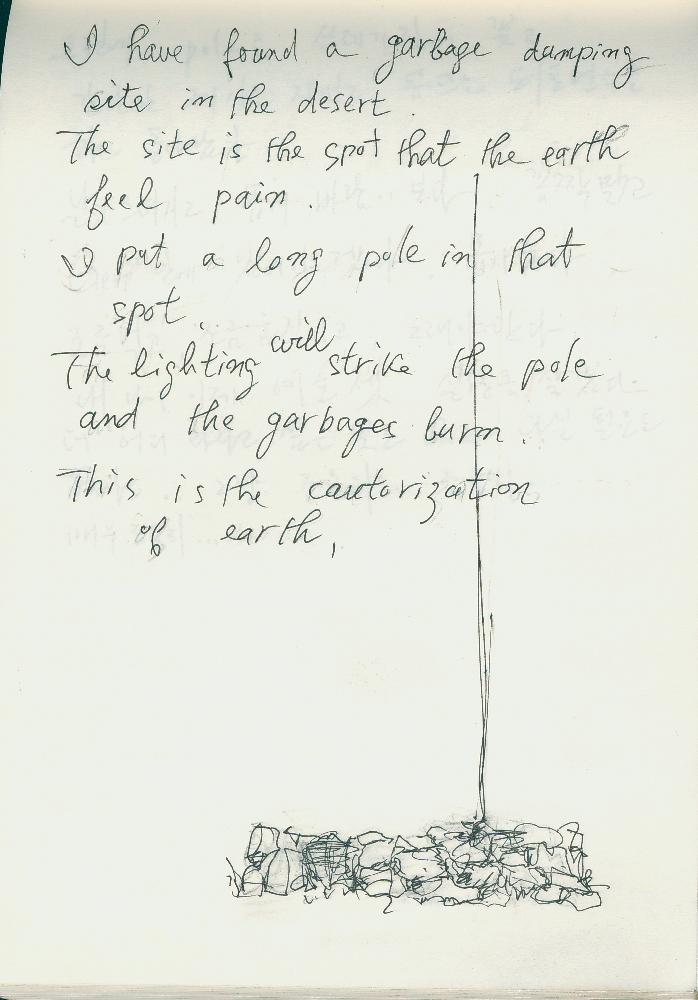 I have found a garbage damping
site in the desert.
The site is the spot that the earth
feel pain.
I put a long pole in that
spot.
The lighting will strike the pole
and the garbages burn.
This is the cautorization
of earth,